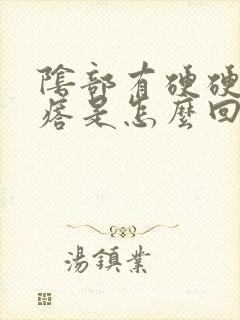 陰部有硬硬
痞是怎麼回
湯鎮業